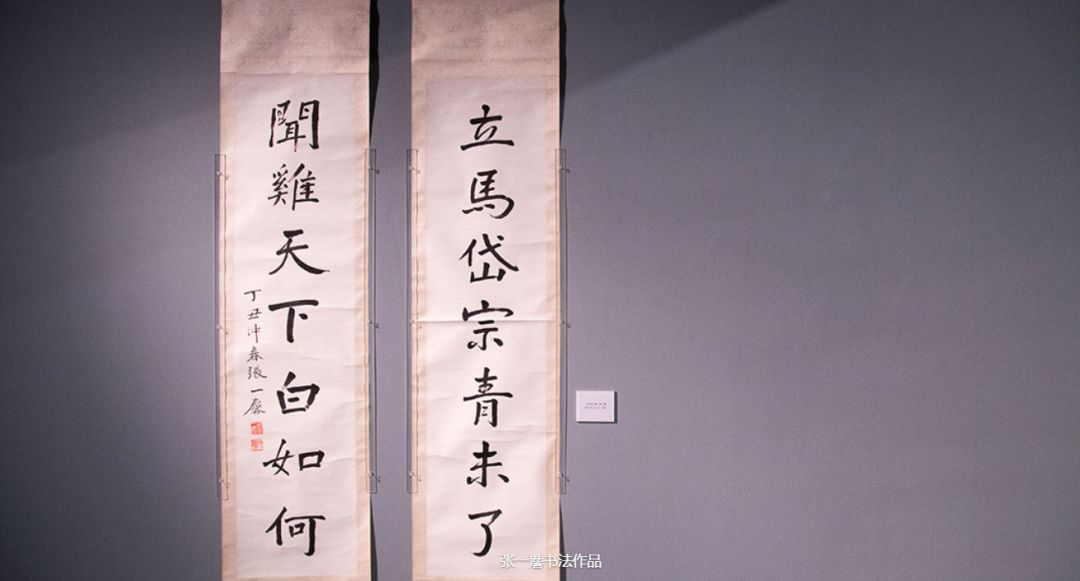 立馬岱宗青未了
聞雞天下白如何
丁丑仲春張一麐
张一麐书法作品